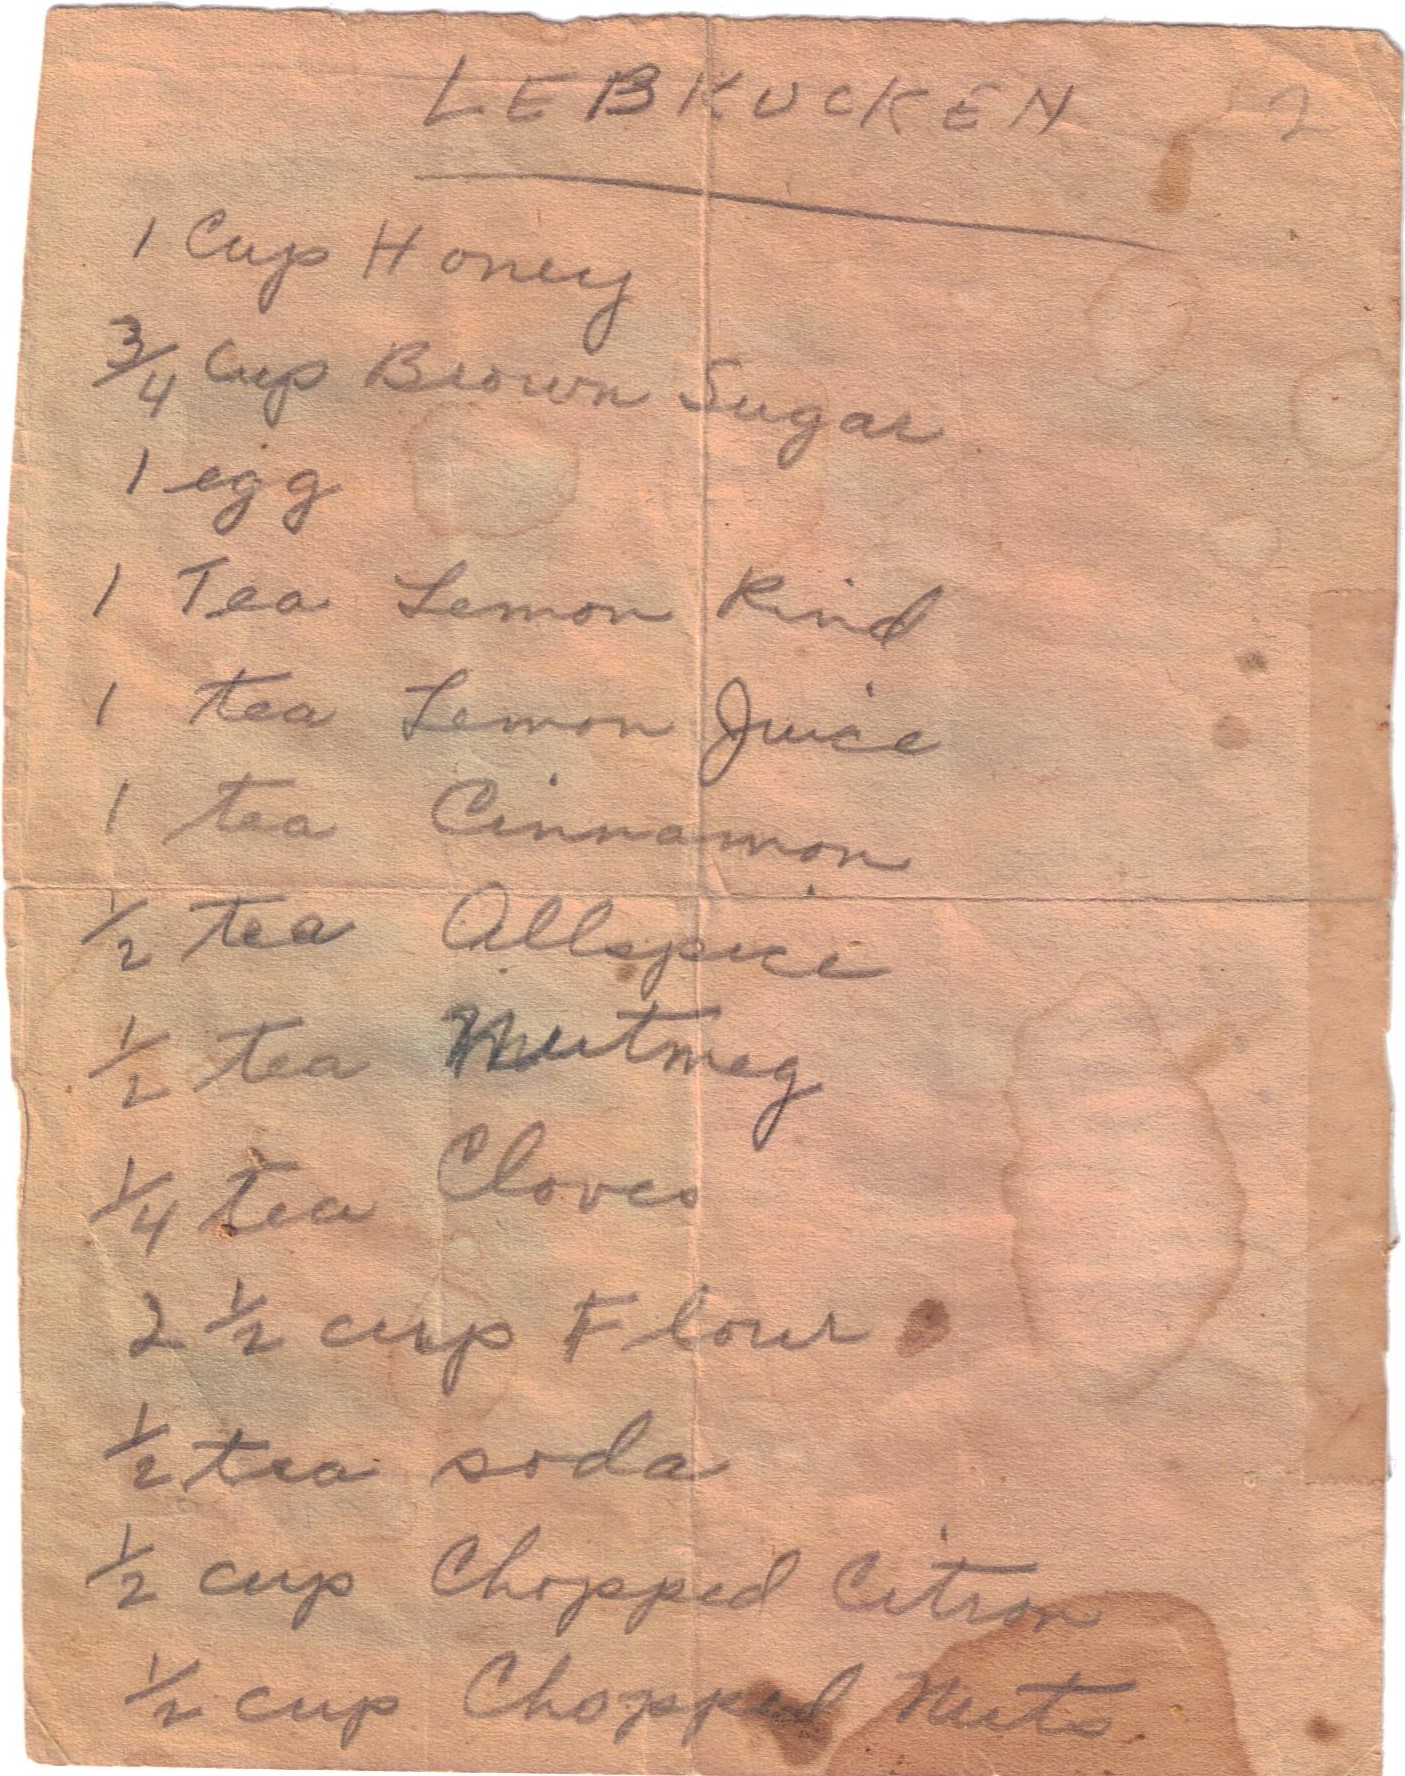 LEBKUCKEN 2
1 Cup Honey
3/4 Cup Brown Sugar
1 egg
1 Tea Lemon Rind
1 tea Lemon Juice
1 tea Cinnamon
1/2 tea Allspice
1/2 tea Nutmeg
1/4 tea Cloves
2 1/2 cup Flour
1/2 tea soda
1/2 cup Chopped Citron
1/2 cup Chopped Nuts